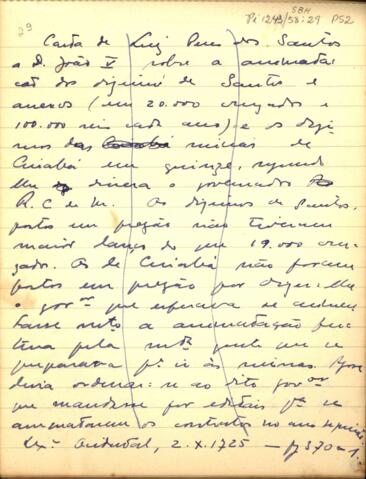 29
SBH
Pi 1243/58:29 P52
Carta de Luiz dos Santos
a D. João V sobre a arremata-
ção dos dizimos de Santos e
anexos (em 20.000 cruzados e
100.000 reis cada ano) e os dizi-
mos das minas de
Cuiabá em quinze, segundo
lhe dissera o governador
R. C. de M. Os dizimos de Santos,
postos em pregão não tiveram
maior lanço do que 19.000 cruza-
zados. Os de Cuiabá não foram
postos em pregão por dizer-lhe
o govor que esperava se aumen-
tasse mto a arrematação
pela mta gente que se
preparava pa ir às minas.
devia ordenar-se ao dito govor
que mandasse por editais pa se
arrematarem os contratos no ano
Lxa Ocidental, 2.X.1725 —